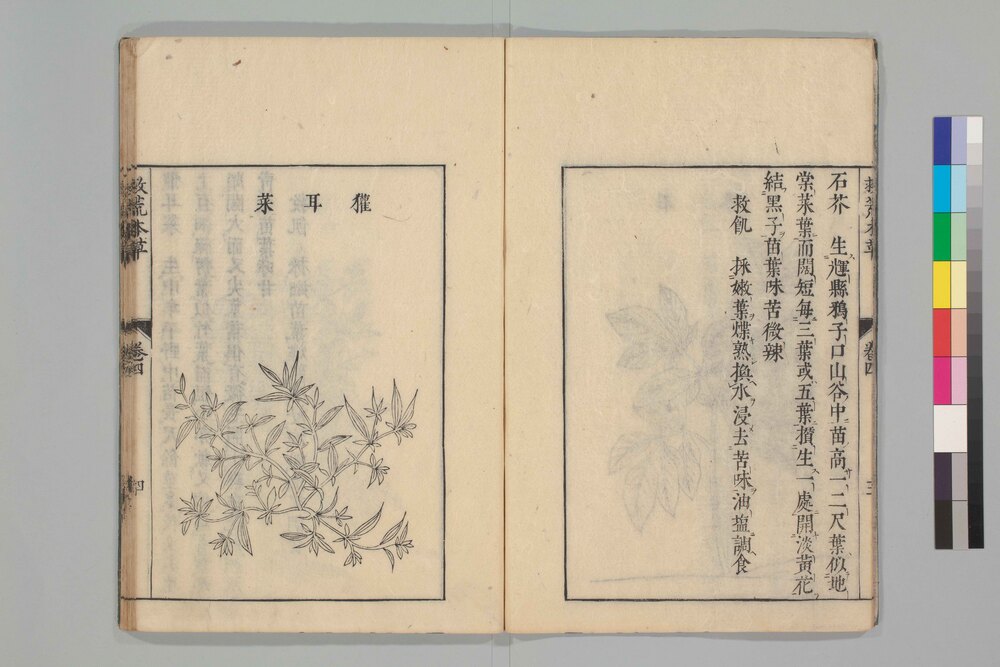 石芥　生輝縣鴉子口山谷中苗高一二尺葉似地
棠菜葉而闊短每三葉或五葉攢生一處開淡黃花
結黑子苗葉味苦微辣
救飢　採嫩葉煠熟換水浸去苦味油塩調食
卷四
三
獾耳菜
救荒本草
卷四
四